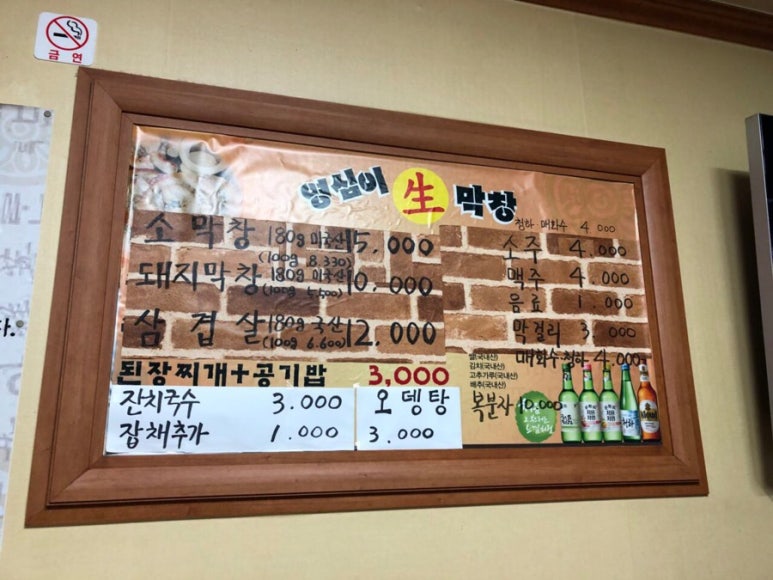 금연
영심이 生 막창
소 막창 180g 미국산 15,000
(100g 8.330)
돼지막창 180g 미국산 10,000
삼 겹 살 180g 국산 12,000
(100g 6.600)
된장찌개+공기밥 3,000
잔치국수 3.000
잡채추가 1.000
오 뎅 탕
3.000
청하 매화수 4 000
소주 4.000
맥주 4.000
음료 1.000
막걸리 3 000
쌀(국내산)
김치(국내산)
고추가루(국내산)
배추(국내산)
매화수 청하 4 000
복분자 10,000
다.